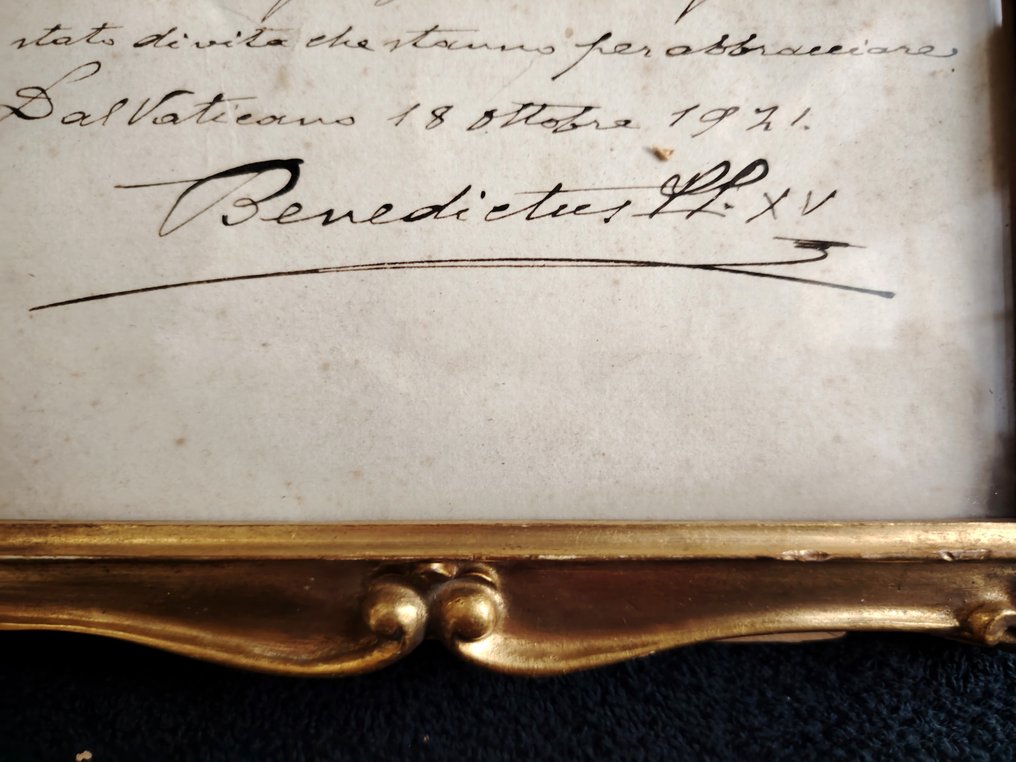 stato di vita che stanno per abbracciare.
Dal Vaticano 18 Ottobre 1921.
Benedictus PP. XV